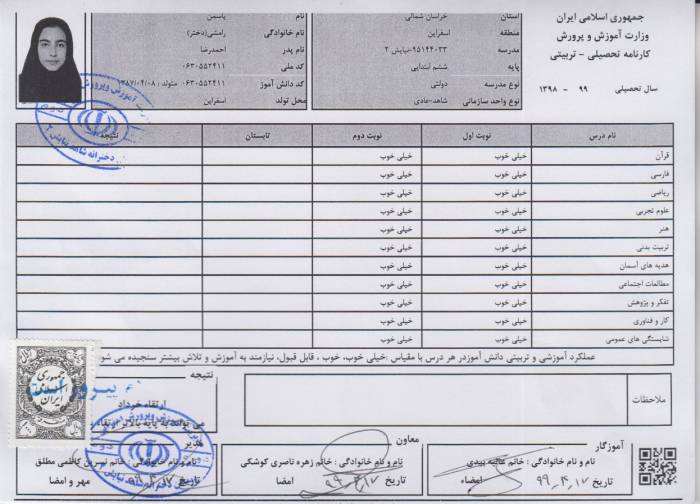 جمهوری اسلامی ایران
وزارت آموزش و پرورش
کارنامه تحصیلی - تربیتی
سال تحصیلی ۹۹ - ۱۳۹۸
استان خراسان شمالی
منطقه اسفراین
مدرسه ۹۵۱۴۴۰۳۳-نیایش ۲
پایه ششم ابتدایی
نوع مدرسه دولتی
نوع واحد سازمانی شاهد-عادی
نام یاسمن
نام خانوادگی رامشی(دختر)
نام پدر احمدرضا
کد ملی ۰۶۳۰۵۵۲۴۱۱
کد دانش آموز ۰۶۳۰۵۵۲۴۱۱ متولد : ۱۳۸۷/۰۴/۰۸
محل تولد اسفراین
نام درس نوبت اول نوبت دوم تابستان نتیجه
قرآن خیلی خوب خیلی خوب
فارسی خیلی خوب خیلی خوب
ریاضی خیلی خوب خیلی خوب
علوم تجربی خیلی خوب خیلی خوب
هنر خیلی خوب خیلی خوب
تربیت بدنی خیلی خوب خیلی خوب
هدیه های آسمان خیلی خوب خیلی خوب
مطالعات اجتماعی خیلی خوب خیلی خوب
تفکر و پژوهش خیلی خوب خیلی خوب
کار و فناوری خیلی خوب خیلی خوب
شایستگی های عمومی خیلی خوب خیلی خوب
عملکرد آموزشی و تربیتی دانش آموزدر هر درس با مقیاس :خیلی خوب، خوب ، قابل قبول، نیازمند به آموزش و تلاش بیشتر سنجیده می شود
ملاحظات
نتیجه
ارتقاء خرداد
می تواند به پایه بالاتر ارتقاء
جمهوری اسلامی ایران
آموزگار
نام و نام خانوادگی : خانم عبیدی
تاریخ ۹۹،۴،۱۷ امضاء
معاون
نام و نام خانوادگی : خانم زهره ناصری کوشکی
تاریخ ۹۹،۴،۱۷ امضا
مدیر
نام و نام خانوادگی : خانم نسرین کاظمی مطلق
تاریخ ۹۹،۴،۱۷ مهر و امضا